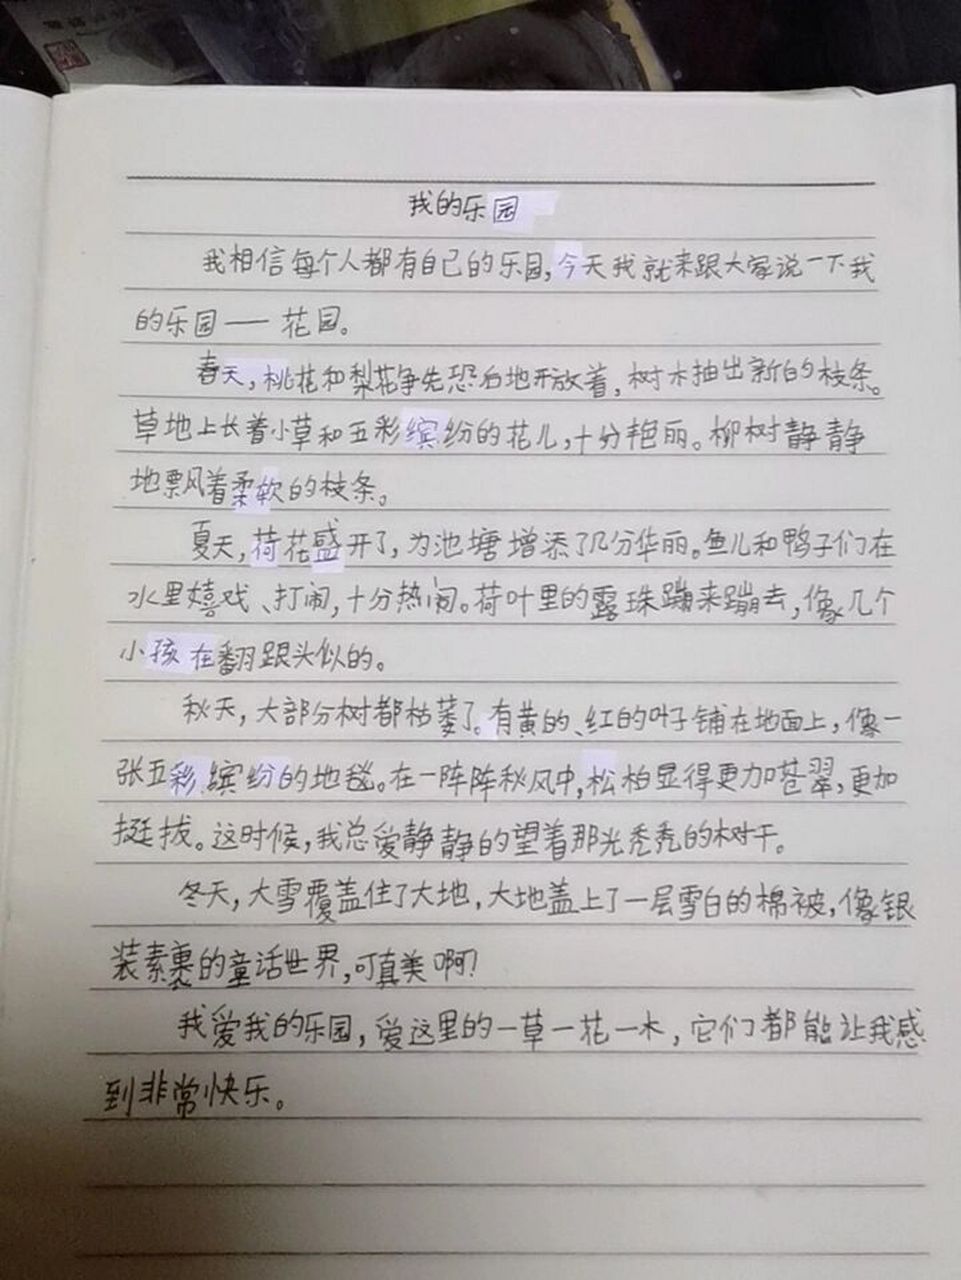 我的乐园
我相信每个人都有自己的乐园,今天我就来跟大家说一下我
的乐园——花园。
春天,桃花和梨花争先恐后地开放着,树木抽出新的枝条。
草地上长着小草和五彩缤纷的花儿,十分艳丽。柳树静静
地飘着柔软的枝条。
夏天,荷花盛开了,为池塘增添了几分华丽。鱼儿和鸭子们在
水里嬉戏、打闹,十分热闹。荷叶里的露珠蹦来蹦去,像几个
小孩在翻跟头似的。
秋天,大部分树都枯萎了。有黄的、红的叶子铺在地面上,像一
张五彩缤纷的地毯。在一阵阵秋风中,松柏显得更加苍翠,更加
挺拔。这时候,我总爱静静的望着那光秃秃的树干。
冬天,大雪覆盖住了大地,大地盖上了一层雪白的棉被,像银
装素裹的童话世界,可真美啊!
我爱我的乐园,爱这里的一草一花一木,它们都能让我感
到非常快乐。